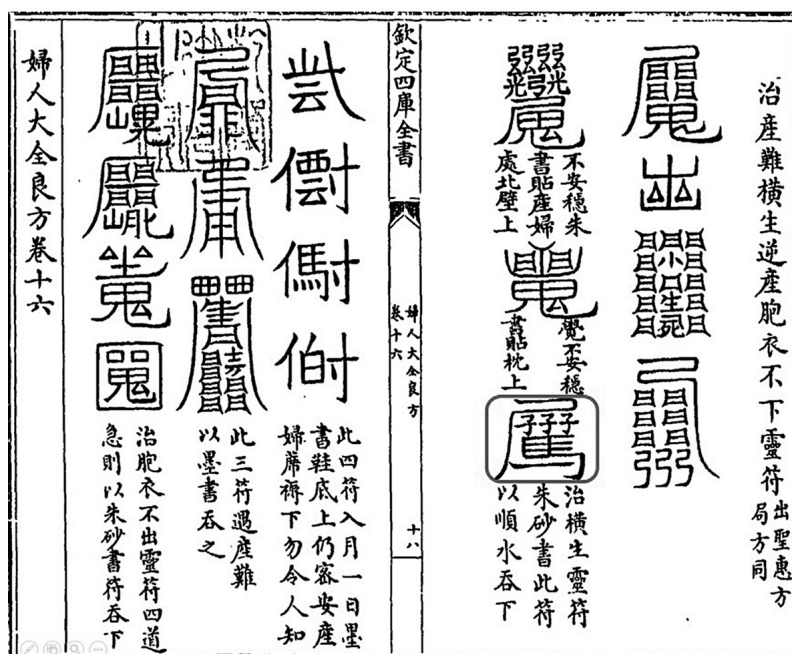 治產難橫生逆產胞衣不下靈符出聖惠方
局方同
不安穩朱
書貼產婦
處北壁上
覺不安穩
書貼枕上
治橫生靈符
朱砂書此符
以順水吞下
欽定四庫全書
婦人大全良方
卷十六
十八
此四符入月一日墨
書鞋底上仍密安產
婦席褥下勿令人知
此三符遇產難
以墨書吞之
治胞衣不出靈符四道
急則以朱砂書符吞下
婦人大全良方卷十六